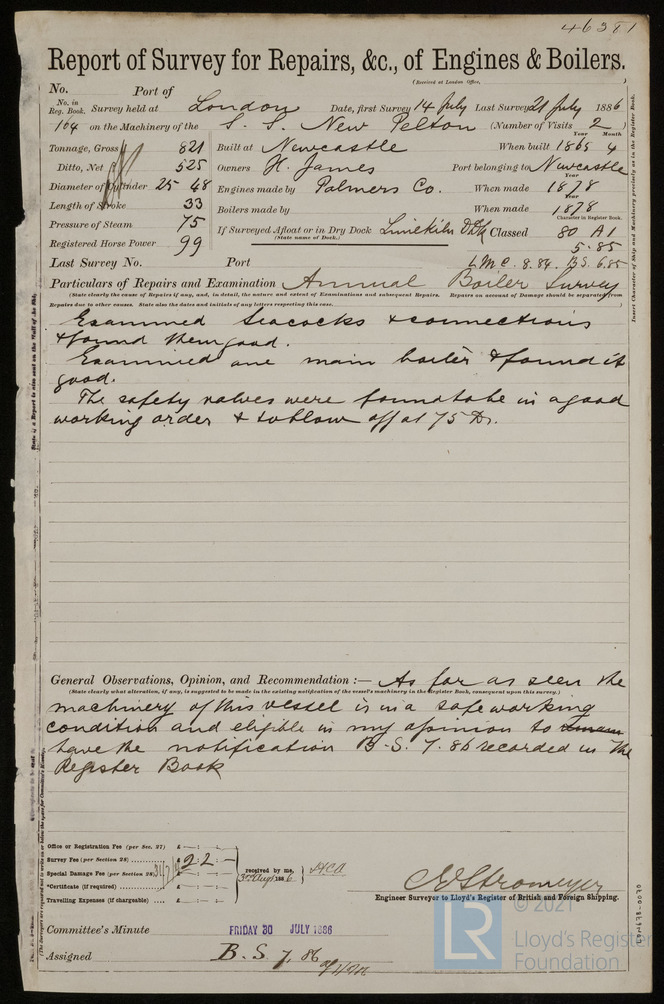 46381
Report of Survey for Repairs, &c., of Engines & Boilers.
(Received at London Office, )
No. Port of
No. in Reg. Book. Survey held at London Date, first Survey 14 July Last Survey 21 July 1886
104 on the Machinery of the S. S. New Pelton (Number of Visits 2 )
Tonnage, Gross 821 Built at Newcastle When built Year 1865 Month 4
Ditto, Net 525 Owners H. James Port belonging to Newcastle
Diameter of Cylinder 25 48 Engines made by Palmers Co. When made Year 1878
Length of Stroke 33 Boilers made by When made Year 1878
Pressure of Steam 75 If Surveyed Afloat or in Dry Dock Limekiln Dk Classed Character in Register Book. 80 A1
(State name of Dock.)
Registered Horse Power 99 5.85
Last Survey No. Port LMC. 8.84. B.S. 6.85
Particulars of Repairs and Examination Annual Boiler Survey
(State clearly the cause of Repairs if any, and, in detail, the nature and extent of Examinations and subsequent Repairs. Repairs on account of Damage should be separated from
Repairs due to other causes. State also the dates and initials of any letters respecting this case. )
Examined Seacocks & connections
& found them good.
Examined one main boiler & found it
good.
The safety valves were found to be in a good
working order & to blow off at 75 lbs.
General Observations, Opinion, and Recommendation :— As far as seen the
(State clearly what alteration, if any, is suggested to be made in the existing notification of the vessel's machinery in the Register Book, consequent upon this survey.)
machinery of this vessel is in a safe working
condition and eligible in my opinion to
have the notification B.S. 7.86 recorded in the
Register Book
Office or Registration Fee (per Sec. 27) £ : :
Survey Fee (per Section 28) £ 2 : 2 : —
Special Damage Fee (per Section 28) £ : :
*Certificate (if required) £ : :
Travelling Expenses (if chargeable) £ : :
received by me,
3rd Aug 1886
Engineer Surveyor to Lloyd's Register of British and Foreign Shipping.
Committee's Minute FRIDAY 30 JULY 1886
Assigned B. S. 7. 86
Insert Character of Ship and Machinery precisely as in the Register Book.
LR
© 2021
Lloyd's Register
Foundation